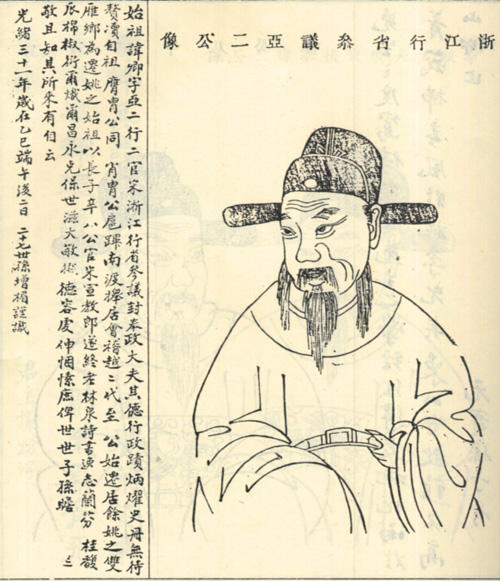 浙江行省叅議亞二公像
始祖諱卿字亞二行二官宋浙江行省參議封奉政大夫其德行政蹟炳燿史冊無待
贅凟自祖膺冑公同 冑公扈蹕南渡擇居會稽越二代至 公始遷居餘姚之雙
雁鄉為遷姚之始祖以長子辛八公官宋宣教郎遂終老林泉詩書適志蘭芬 桂馥
棉椒衍爾熾爾昌永克保世滋大敬撫德容虔伸悃愫庶俾世世子孫瞻
敬且知其所來有自云
光緒三十一年歲在乙巳端午後二日 二十七世孫增楣謹識